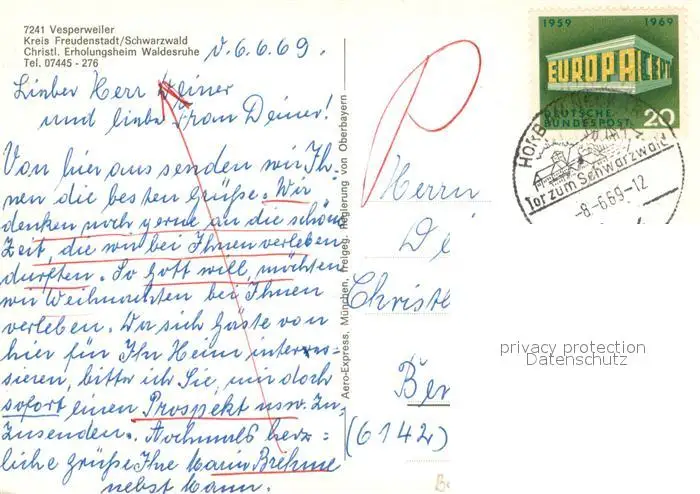 7241 Vesperweiler
Kreis Freudenstadt/Schwarzwald
Christl. Erholungsheim Waldesruhe
Tel. 07445 - 276
d. 6.6.69.
Lieber Herr Deiner
und liebe Frau Deiner!
Von hier aus senden wir Ih-
nen die besten Grüße. Wir
denken noch gerne an die schöne
Zeit, die wir bei Ihnen verleben
durften. So Gott will, möchten
wir Weihnachten bei Ihnen
verleben. Da sich Gäste von
hier für Ihr Heim interes-
sieren, bitte ich Sie, mir doch
sofort einen Prospekt usw. Zu-
zusenden. Nochmals herz=
liche Grüße Ihre Maria Brehme
nebst Mann.
Aero-Express, München, Freigeg. Regierung von Oberbayern
Herrn
Dei
Christl
Ben
(6142)
1959 1969
EUROPA CEPT
DEUTSCHE
BUNDESPOST 20
HORB
Tor zum Schwarzwald
-8.-6.69-12
privacy protection
Datenschutz